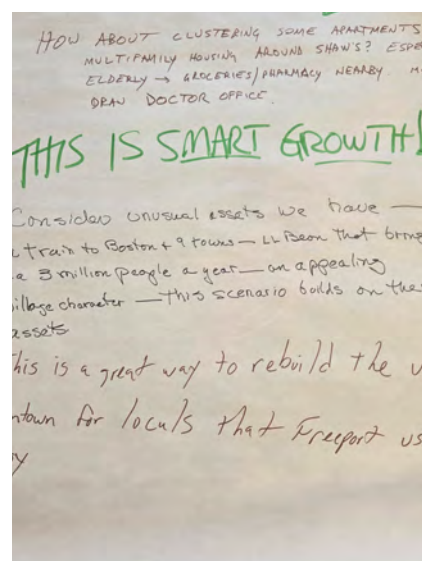 HOW ABOUT CLUSTERING SOME APARTMENTS
MULTIFAMILY HOUSING AROUND SHAW'S? ESPE
ELDERLY → GROCERIES/PHARMACY NEARBY. M
DRAW DOCTOR OFFICE.
THIS IS SMART GROWTH!
Consider unusual assets we have —
a train to Boston + 9 towns — LL Bean that brings
3 million people a year — an appealing
village character — this scenario builds on the
assets
this is a great way to rebuild the v
ntown for locals that Freeport us